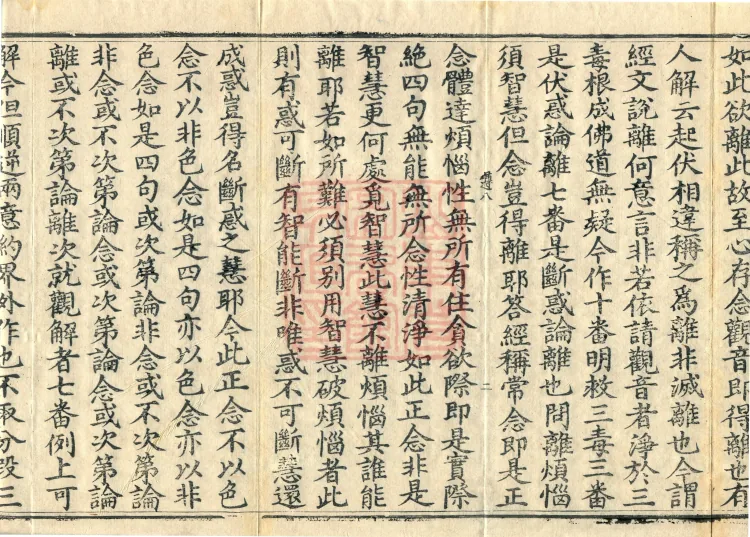 如此欲離此故至心存念觀音即得離也有
人解云起伏相違稱之爲離非滅離也今謂
經文說離何意言非若依請觀音者淨於三
毒根成佛道無疑今作十番明救三毒三番
是伏惑論離七番是斷惑論離也問離煩惱
須智慧但念豈得離耶答經稱常念即是正
念體達煩惱性無所有住貪欲際即是實際
絶四句無能無所念性清淨如此正念非是
智慧更何處覓智慧此慧不離煩惱其誰能
離耶若如所難必須別用智慧破煩惱者此
則有惑可斷有智能斷非唯惑不可斷慧還
成惑豈得名斷惑之慧耶今此正念不以色
念不以非色念如是四句亦以色念亦以非
色念如是四句或次第論非念或不次第論
非念或不次第論念或次第論念或次第論
離或不次第論離次就觀解者七番例上可
解今但順逆兩意約界外作也不取分段三